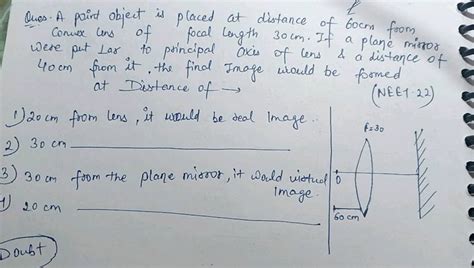 Ques. A point object is placed at distance of 60cm from
Convex lens of focal length 30cm. If a plane mirror
were put Lar to principal axis of lens & a distance of
40cm from it, the final Image would be formed
at Distance of →
(NEET-22)
1) 20cm from lens, it would be real Image..
2) 30 cm
3) 30 cm from the plane mirror, it would virtual
Image.
4) 20 cm
f=30
O
60 cm
Doubt